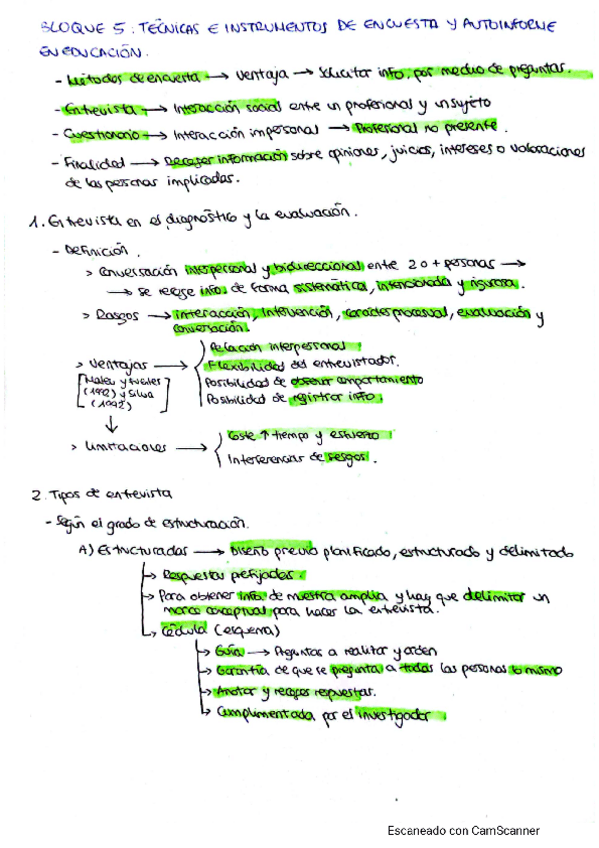 BLOQUE 5: TÉCNICAS E INSTRUMENTOS DE ENCUESTA Y AUTOINFORME
EN EDUCACIÓN.
- Métodos de encuesta → Ventaja → Solicitar info. por medio de preguntas.
- Entrevista → Interacción social entre un profesional y un sujeto
- Cuestionario → Interacción impersonal → Profesional no presente.
- Finalidad → Recoger información sobre opiniones, juicios, intereses o valoraciones
de las personas implicadas.
1. Entrevista en el diagnóstico y la evaluación.
- Definición.
> Conversación interpersonal y bidireccional entre 2 o + personas →
→ Se recoge info. de forma sistemática, intencionada y rigurosa.
> Rasgos → interacción, intervención, carácter procesual, evaluación y
conversación.
Relación interpersonal.
> Ventajas → Flexibilidad del entrevistador.
[ y (1992) y Silva (1992)] Posibilidad de observar comportamiento
Posibilidad de registrar info.
↓
> Limitaciones → Coste ↑ tiempo y esfuerzo.
Interferencias de sesgos.
2. Tipos de entrevista
- Según el grado de estructuración.
A) Estructuradas → Diseño previo planificado, estructurado y delimitado
↳ Respuestas prefijadas.
↳ Para obtener info. de muestra amplia y hay que delimitar un
marco conceptual para hacer la entrevista.
↳ Cédula (esquema)
↳ Guía → Preguntas a realizar y orden
↳ Garantía de que se pregunta a todas las personas lo mismo
↳ Anotar y recoger respuestas.
↳ Cumplimentada por el investigador.
Escaneado con CamScanner